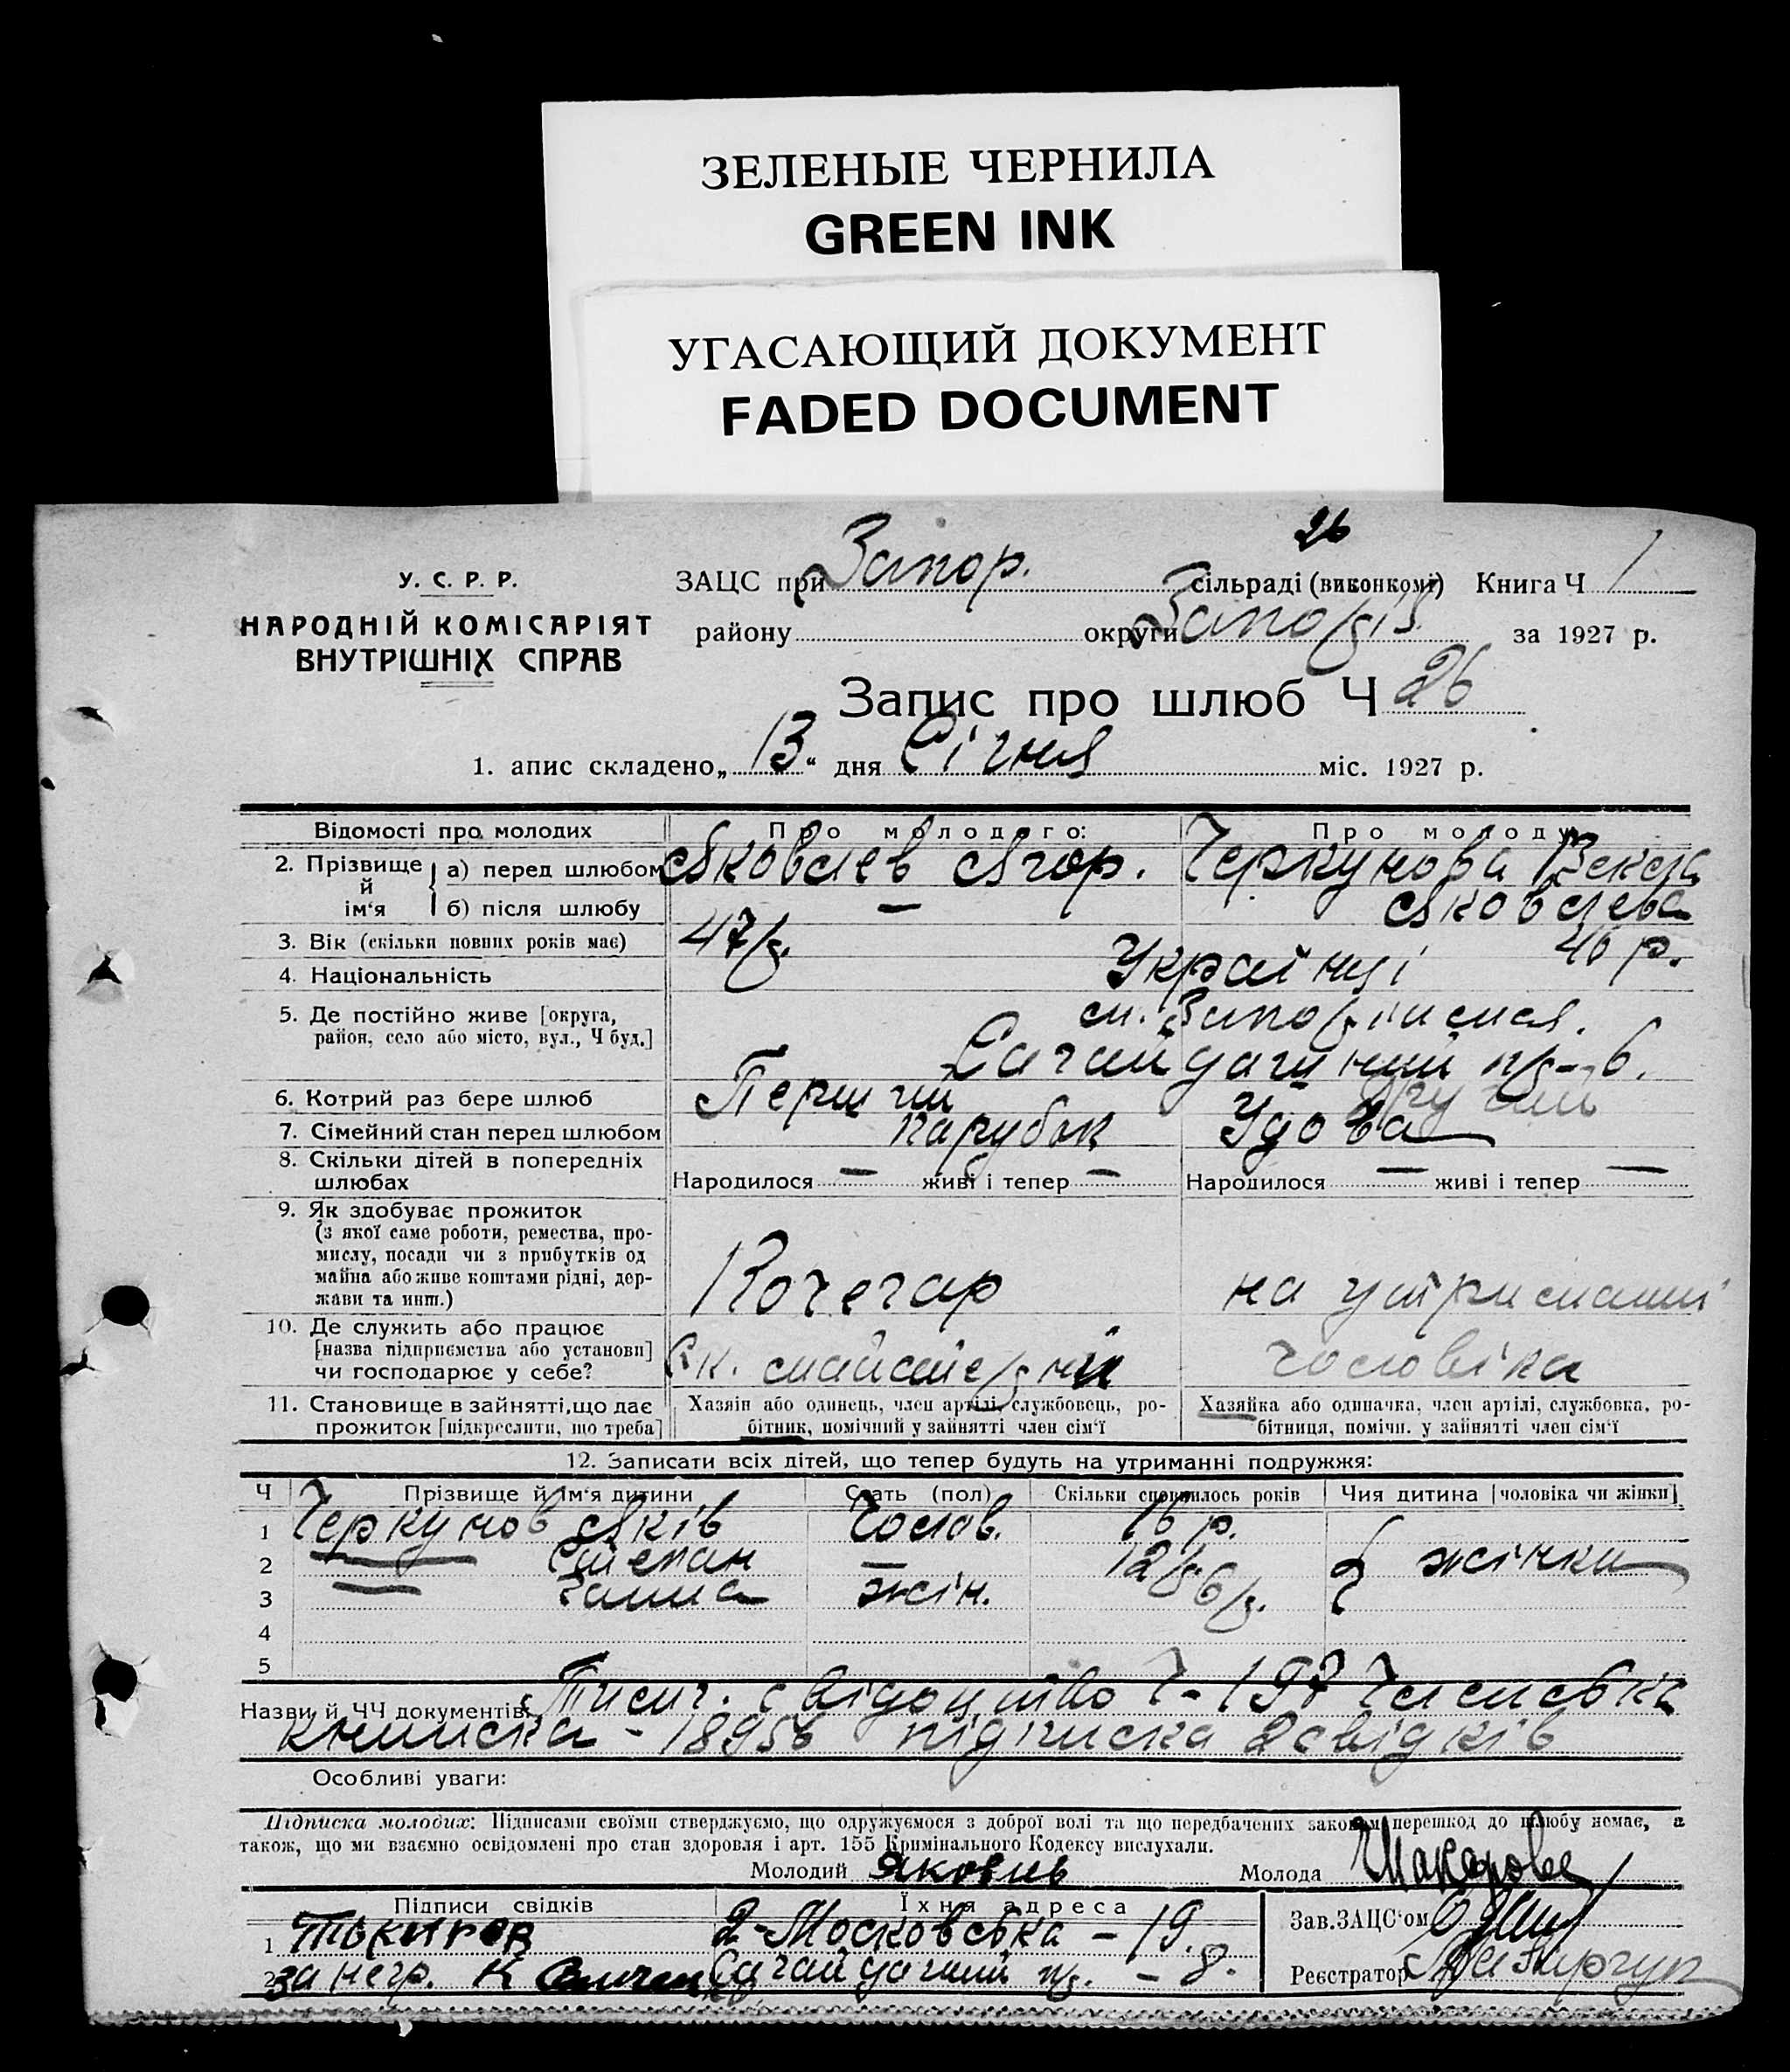 ЗЕЛЕНЫЕ ЧЕРНИЛА
GREEN INK
УГАСАЮЩИЙ ДОКУМЕНТ
FADED DOCUMENT
26
У. С. Р. Р.
НАРОДНІЙ КОМІСАРІЯТ
ВНУТРІШНІХ СПРАВ
ЗАЦС при Запор. сільраді (виконкомі) Книга Ч 1
району округи за 1927 р.
Запис про шлюб Ч 26
1. апис складено „13“ дня Січня міс. 1927 р.
Відомості про молодих Про молодого: Про молоду:
2. Прізвище й ім‘я а) перед шлюбом Яковлев Ягор. Черкунова
б) після шлюбу — Яковлева
3. Вік (скільки повних років має) 47 р. 46 р.
4. Національність Українці
5. Де постійно живе [округа,
район, село або місто, вул., Ч буд.]
Сагайдачний пр – 6.
6. Котрий раз бере шлюб Перший Другий
7. Сімейний стан перед шлюбом парубок Удова
8. Скільки дітей в попередніх
шлюбах Народилося — живі і тепер — Народилося — живі і тепер —
9. Як здобуває прожиток
(з якої саме роботи, ремества, про-
мислу, посади чи з прибутків од
майна або живе коштами рідні, дер-
жави та инш.)
Кочегар на утриманні
10. Де служить або працює
[назва підприємства або установи]
чи господарює у себе?
майстерні чоловіка
11. Становище в зайнятті, що дає
прожиток [підкреслити, що треба]
Хазяїн або одинець, член артілі, службовець, ро-
бітник, помічний у зайнятті член сім‘ї
Хазяйка або одиначка, член артілі, службовка, ро-
бітниця, помічн. у зайнятті член сім‘ї
12. Записати всіх дітей, що тепер будуть на утриманні подружжя:
Ч Прізвище й ім‘я дитини Стать (пол) Скільки сповнилось років Чия дитина [чоловіка чи жінки]
1 Черкунов Яків Чолов. 16 р.
2 — Степан — 12 р. жінки
3 — Ганна жін. 6 р.
4
5
Назви й ЧЧ документів: свідоцтво Ч – 197 Членська
книжка – 18956 підписка 2 свідків
Особливі уваги:
Підписка молодих: Підписами своїми стверджуємо, що одружуємося з доброї волі та що передбачених законом перешкод до шлюбу немає, а
також, що ми взаємно освідомлені про стан здоровля і арт. 155 Кримінального Кодексу вислухали.
Молодий Яковлев Молода
Підписи свідків Їхня адреса Зав. ЗАЦС‘ом
1 2-Московська – 19.
2 за негр. Сагайдачний пр. – 8. Реєстратор